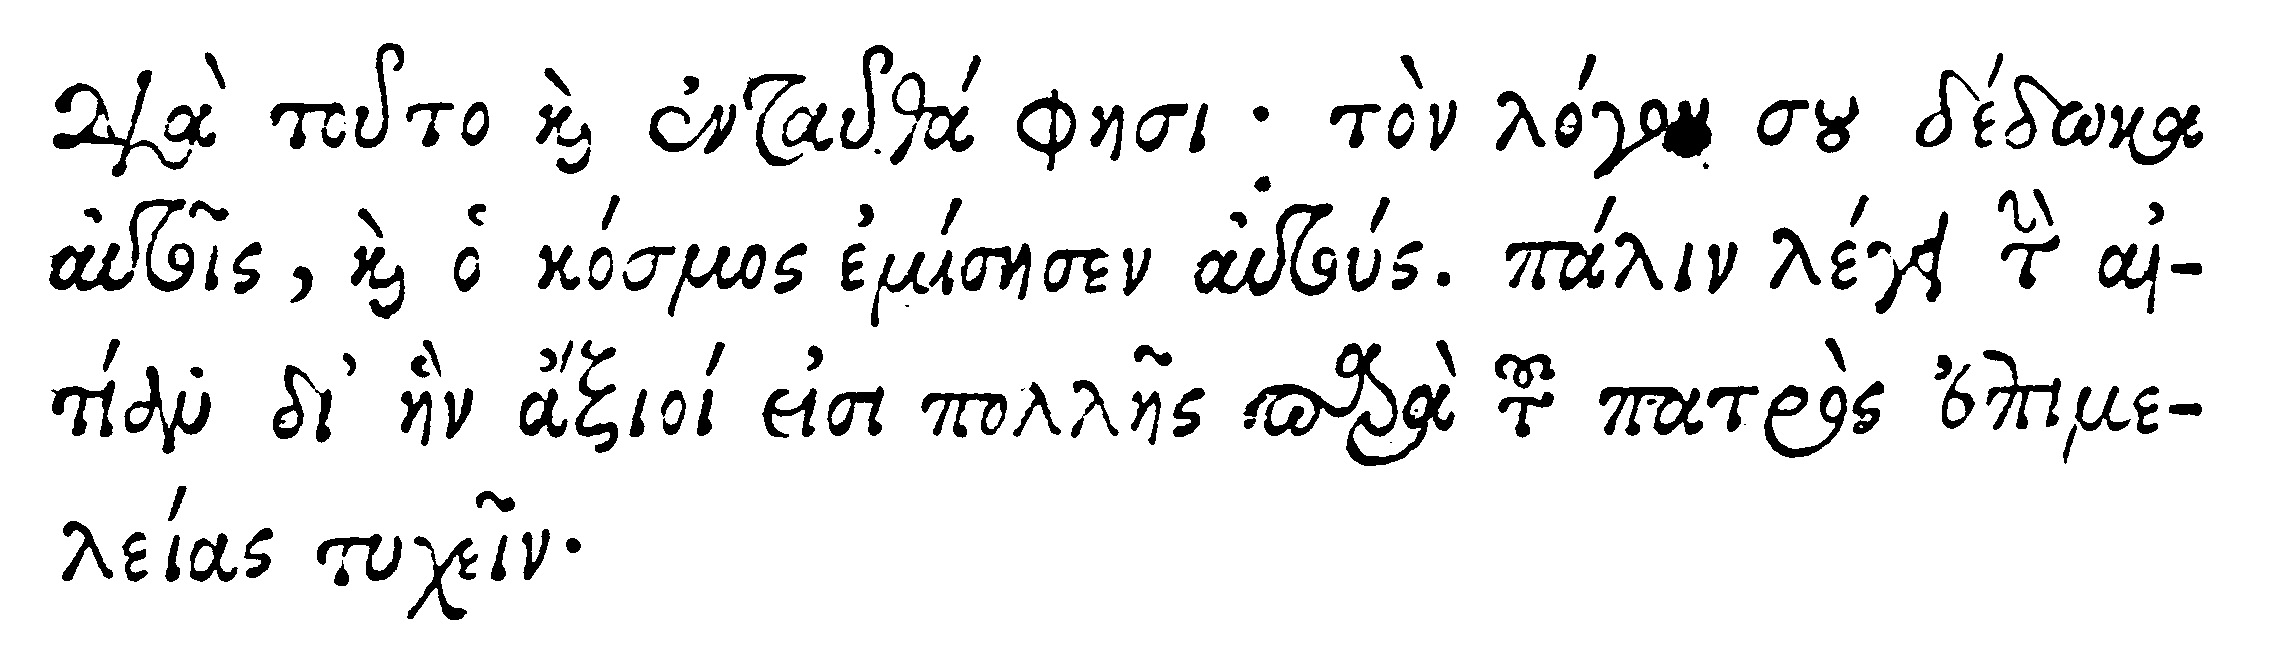 Διὰ τοῦτο καὶ ἐνταῦθά φησι· τὸν λόγον σου δέδωκα
αὐτοῖς, καὶ ὁ κόσμος ἐμίσησεν αὐτούς. πάλιν λέγει τὴν αἰ-
τίαν δι' ἣν ἄξιοί εἰσι πολλῆς παρὰ τοῦ πατρὸς ἐπιμε-
λείας τυχεῖν·